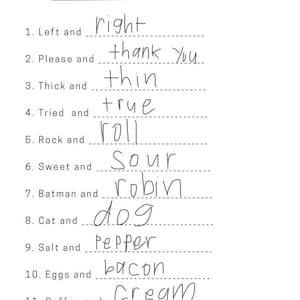 1. Left and right
2. Please and thank you
3. Thick and thin
4. Tried and true
5. Rock and roll
6. Sweet and sour
7. Batman and robin
8. Cat and dog
9. Salt and pepper
10. Eggs and bacon
cream